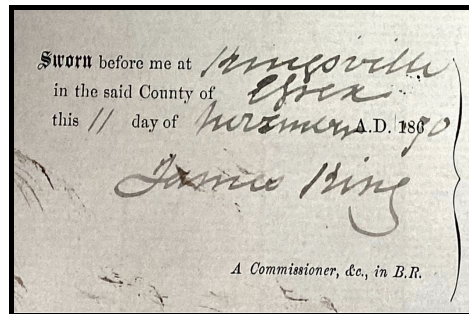 Sworn before me at Kingsville
in the said County of Essex
this 11 day of November A.D. 1870
James King
A Commissioner, &c., in B.R.